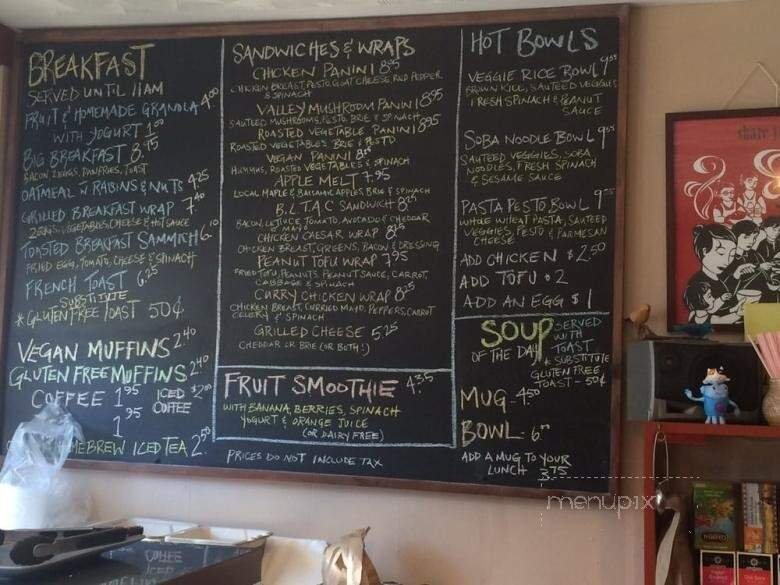 BREAKFAST
SERVED UNTIL 11AM
FRUIT & HOMEMADE GRANOLA 4.00
WITH YOGURT 1.00
BIG BREAKFAST 8.75
BACON, 2 EGGS, PANFRIES, TOAST
OATMEAL W RABINS & NUTS 4.25
GRILLED BREAKFAST WRAP 7.40
2 EGGS, VEGETABLES, CHEESE & HOT SAUCE
TOASTED BREAKFAST SAMMICH 6.10
FRIED EGG, TOMATO, CHEESE & SPINACH
FRENCH TOAST 6.25
SUBSTITUTE
* GLUTEN FREE TOAST 50¢
VEGAN MUFFINS 2.40
GLUTEN FREE MUFFINS 2.40
COFFEE 1.95
ICED COFFEE $2.00
1.95
HOMEBREW ICED TEA 2.50
SANDWICHES & WRAPS
CHICKEN PANINI 8.95
CHICKEN BREAST, PESTO, GOAT CHEESE, RED PEPPER
& SPINACH
VALLEY MUSHROOM PANINI 8.95
SAUTEED MUSHROOMS, PESTO, BRIE & SPINACH
ROASTED VEGETABLE PANINI 8.95
ROASTED VEGETABLES, BRIE & PESTO
VEGAN PANINI
HUMMUS, ROASTED VEGETABLES & SPINACH
APPLE MELT 7.95
LOCAL MAPLE & BALSAMIC APPLES, BRIE & SPINACH
B.L.T.A.C SANDWICH 8.25
BACON, LETTUCE, TOMATO, AVOCADO & CHEDDAR
& MAYO
CHICKEN CAESAR WRAP
CHICKEN BREAST, GREENS, BACON & DRESSING
PEANUT TOFU WRAP 7.95
FRIED TOFU, PEANUTS, PEANUT SAUCE, CARROT,
CABBAGE & SPINACH
CURRY CHICKEN WRAP 8.25
CHICKEN BREAST, CURRIED MAYO, PEPPERS, CARROT
CELERY & SPINACH
GRILLED CHEESE 5.25
CHEDDAR OR BRIE (OR BOTH!)
FRUIT SMOOTHIE 4.35
WITH BANANA, BERRIES, SPINACH
YOGURT & ORANGE JUICE
(OR DAIRY FREE)
PRICES DO NOT INCLUDE TAX
HOT BOWLS
VEGGIE RICE BOWL 9.95
BROWN RICE, SAUTEED VEGGIES
FRESH SPINACH & PEANUT
SAUCE
SOBA NOODLE BOWL 9.95
SAUTEED VEGGIES, SOBA
NOODLES, FRESH SPINACH
& SESAME SAUCE
PASTA PESTO BOWL
WHOLE WHEAT PASTA, SAUTEED
VEGGIES, PESTO & PARMESAN
CHEESE
ADD CHICKEN $2.50
ADD TOFU $2
ADD AN EGG $1
SOUP
OF THE DAY
SERVED
WITH
TOAST
* SUBSTITUTE
GLUTEN FREE
TOAST - 50¢
MUG - 4.50
BOWL - 6.00
ADD A MUG TO YOUR
LUNCH 3.75
menupix
COFFEE
ICED
COFFEE